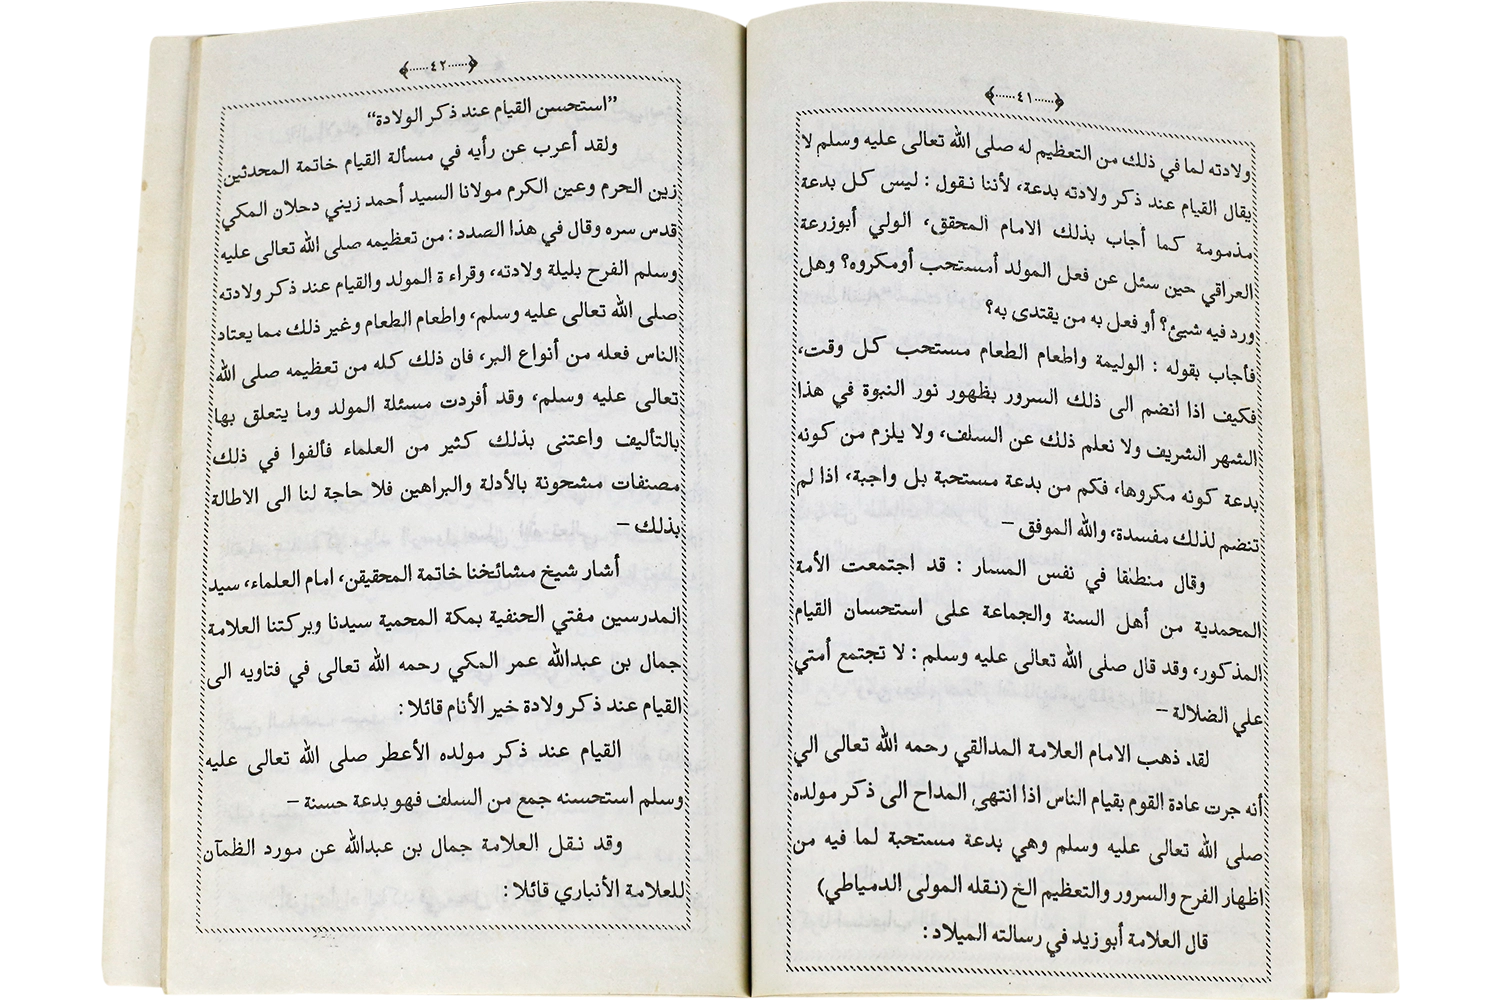 ٤١
ولادته لما في ذلك من التعظيم له صلى الله تعالى عليه وسلم لا
يقال القيام عند ذكر ولادته بدعة، لأننا نقول : ليس كل بدعة
مذمومة كما أجاب بذلك الامام المحقق، الولي أبوزرعة
العراقي حين سئل عن فعل المولد أمستحب أومكروه؟ وهل
ورد فيه شيئ؟ أو فعل به من يقتدى به؟
فأجاب بقوله : الوليمة واطعام الطعام مستحب كل وقت،
فكيف اذا انضم الى ذلك السرور بظهور نور النبوة في هذا
الشهر الشريف ولا نعلم ذلك عن السلف، ولا يلزم من كونه
بدعة كونه مكروها، فكم من بدعة مستحبة بل واجبة، اذا لم
تنضم لذلك مفسدة، والله الموفق –
وقال منطقا في نفس المسار : قد اجتمعت الأمة
المحمدية من أهل السنة والجماعة على استحسان القيام
المذكور، وقد قال صلى الله تعالى عليه وسلم : لا تجتمع أمتي
علي الضلالة –
لقد ذهب الامام العلامة المدالقي رحمه الله تعالى الي
أنه جرت عادة القوم بقيام الناس اذا انتهى المداح الى ذكر مولده
صلى الله تعالى عليه وسلم وهي بدعة مستحبة لما فيه من
اظهار الفرح والسرور والتعظيم الخ (نقله المولى الدمياطي)
قال العلامة أبو زيد في رسالته الميلاد :
٤٢
"استحسن القيام عند ذكر الولادة"
ولقد أعرب عن رأيه في مسألة القيام خاتمة المحدثين
زين الحرم وعين الكرم مولانا السيد أحمد زيني دحلان المكي
قدس سره وقال في هذا الصدد : من تعظيمه صلى الله تعالى عليه
وسلم الفرح بليلة ولادته، وقراءة المولد والقيام عند ذكر ولادته
صلى الله تعالى عليه وسلم، واطعام الطعام وغير ذلك مما يعتاد
الناس فعله من أنواع البر، فان ذلك كله من تعظيمه صلى الله
تعالى عليه وسلم، وقد أفردت مسئلة المولد وما يتعلق بها
بالتأليف واعتنى بذلك كثير من العلماء فألفوا في ذلك
مصنفات مشحونة بالأدلة والبراهين فلا حاجة لنا الى الاطالة
بذلك –
أشار شيخ مشائخنا خاتمة المحقيقن، امام العلماء، سيد
المدرسين مفتي الحنفية بمكة المحمية سيدنا وبركتنا العلامة
جمال بن عبدالله عمر المكي رحمه الله تعالى في فتاويه الى
القيام عند ذكر ولادة خير الأنام قائلا :
القيام عند ذكر مولده الأعطر صلى الله تعالى عليه
وسلم استحسنه جمع من السلف فهو بدعة حسنة –
وقد نقل العلامة جمال بن عبدالله عن مورد الظمآن
للعلامة الأنباري قائلا :